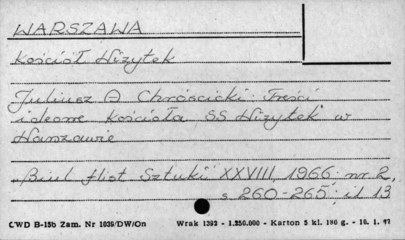 WARSZAWA
Kościół Wizytek
Juliusz A Chrościcki: Treści
ideowe Kościoła SS Wizytek w
Warszawie
„Biul Hist Sztuki" XXVIII, 1966: nr 2,
s 260-265; il 13
CWD B-15b Zam. Nr 1039/DW/On Wrak 1392 - 1.250.000 - Karton 5 kl. 180 g. - 10. 1. 47